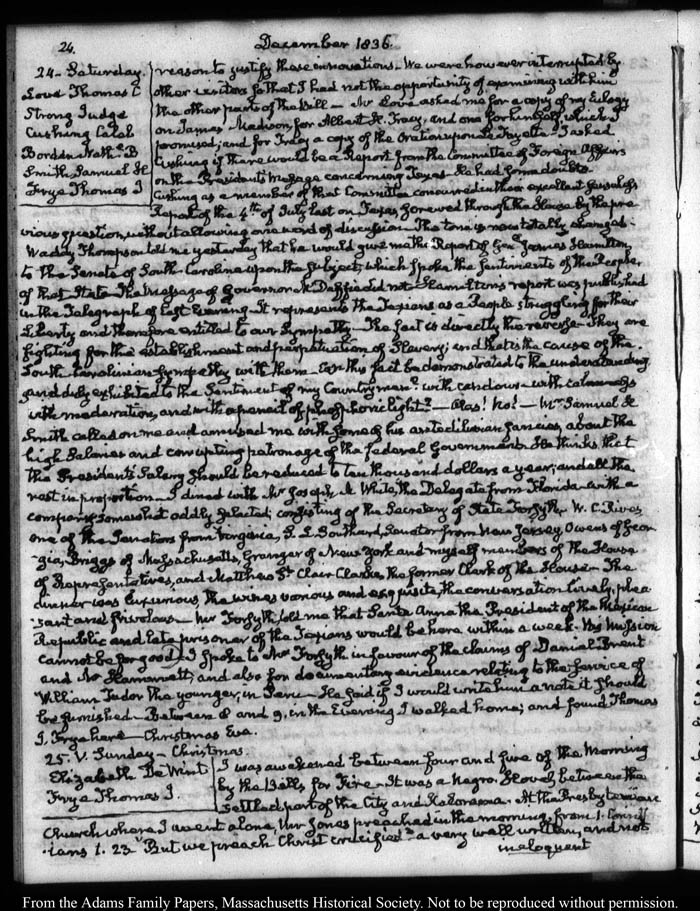 24.
December 1836.
24. Saturday.
Love Thomas C
Strong Judge
Cushing Caleb
Borden Nathl. B
Smith Samuel H
Frye Thomas J
reason to justify these innovations. We were however interrupted by
other visitors so that I had not the opportunity of examining with him
the other parts of the bill — Mr Love asked me for a copy of my Eulogy
on James Madison, for Albert H. Tracy, and one for himself, which I
promised; and for Tracy a copy of the Oration upon La Fayette. I asked
Cushing if there would be a Report from the Committee of Foreign Affairs
on the President's Message concerning Texas. He had some doubts
Cushing as a member of that Committee concurred in those excellent
Report of the 4th. of July last on Texas, screwed through the House by the pre-
vious question, without allowing one word of discussion. The tone is now totally changed.
Waddy Thompson told me yesterday that he would give me the Report of Genl. James Hamilton
to the Senate of South-Carolina upon the subject; which spoke the sentiments of the People
of that State. The Message of Governor McDuffie did not. Hamilton's report was published
in the Telegraph of last Evening. It represents the Texians as a People struggling for their
Liberty, and therefore entitled to our sympathy. The fact is directly the reverse. They are
fighting for the establishment and perpetuation of Slavery; and that is the cause of the
South Carolinian sympathy with them. Can this fact be demonstrated to the understanding
and duly exhibited to the Sentiment of my Countrymen? with candour with calmness
with moderation, and with a pencil of phosphoric light? — Alas! No! — Mr Samuel H
Smith called on me and amused me with some of his fancies, about the
high Salaries and corrupting patronage of the federal Government. He thinks that
the President's Salary should be reduced to ten thousand dollars a year; and all the
rest in proportion. I dined with Mr Joseph M White, the Delegate from Florida with a
company somewhat oddly selected; consisting of the Secretary of State Forsyth, W. C. Rives
one of the Senators from Virginia, S. L. Southard, Senator from New Jersey, Owens of Geor-
gia, Briggs of Massachusetts, Granger of New York and myself members of the House
of Representatives, and Matthew St Clair Clarke, the former Clerk of the House. The
dinner was luxurious, the wines various and exquisite, the conversation lively, plea-
sant and frivolous. Mr Forsyth told me that Santa Anna the President of the Mexican
Republic and late prisoner of the Texians would be here within a week. His mission
cannot be for good. I spoke to Mr Forsyth in favour of the claims of Daniel Brent
and Mr and also for documentary evidence relating to the service of
William Tudor the younger, in Peru. He said if I would write him a note it should
be furnished. Between 8 and 9, in the Evening I walked home; and found Thomas
J. Frye here — Christmas Eve.
25. V. Sunday. Christmas.
Elizabeth De Wint
Frye Thomas J.
I was awakened between four and five of the Morning
by the Bells for Fire. It was a Negro Hovel between the
settled part of the City and Kalorama. At the Presbyterian
Church where I went alone, Mr Jones preached in the morning, from 1. Corinth-
ians 1. 23 "But we preach Christ crucified" a very well written, and not
ineloquent
From the Adams Family Papers, Massachusetts Historical Society. Not to be reproduced without permission.